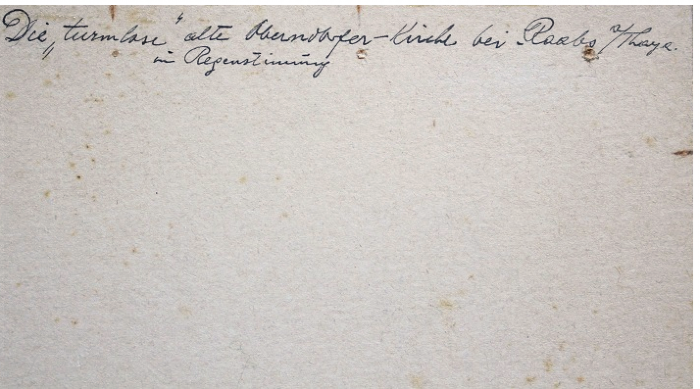 Die „turmlose“ alte Oberndorfer-Kirche bei Raabs a/Thaya.
in Regenstimmung